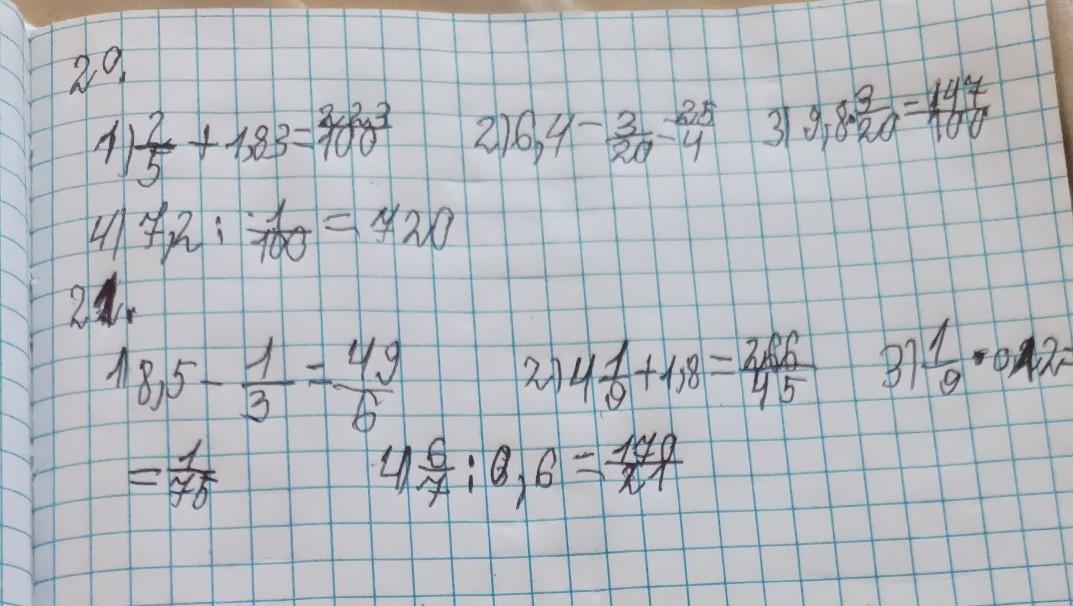 20.
1) 2/5 + 1,83 = 223/100 2) 6,4 - 3/20 = 25/4 3) 9,8 · 3/20 = 147/100
4) 7,2 : 1/100 = 720
21.
1) 8,5 - 1/3 = 49/6 2) 4 1/9 + 1,8 = 266/45 3) 1/9 · 0,12 =
= 1/75 4) 6/7 : 0,6 = 170/21